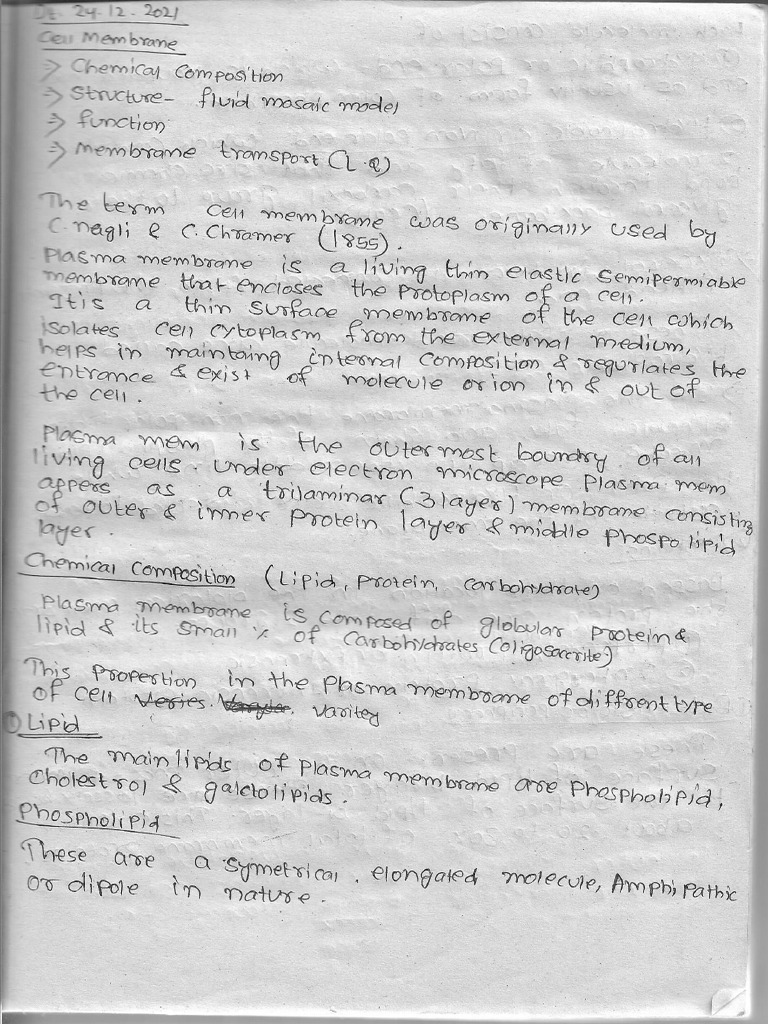 Dt. 24.12.2021
Cell Membrane
⇒ Chemical Composition
⇒ Structure- fluid mosaic model
⇒ function
⇒ membrane transport (L.Q)
The term cell membrane was originally used by
C. nagli & C. Chramer (1855).
Plasma membrane is a living thin elastic semipermiable
membrane that encloses the protoplasm of a cell.
It is a thin surface membrane of the cell which
isolates cell cytoplasm from the external medium,
helps in maintaing internal composition & regurlates the
entrance & exist of molecule or ion in & out of
the cell.
Plasma mem is the outermost boundry of all
living cells. Under electron microscope plasma mem
appers as a trilaminar (3 layer) membrane consisting
of outer & inner protein layer & middle phospo lipid
layer.
Chemical Composition (Lipid, protein, carbohydrate)
Plasma membrane is composed of globular protein &
lipid & its small % of carbohydrates (oligosaccrite)
This propertion in the plasma membrane of diffrent type
of cell Veries. varitey
① Lipid
The main lipids of plasma membrane are phospholipid,
cholestrol & galctolipids.
Phospholipid
These are a symetrical, elongated molecule, Amphipathic
or dipole in nature.